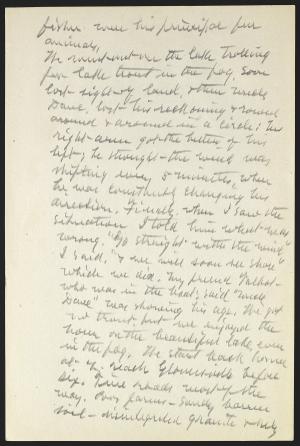 fisher were his principal fur
animals.
We went out on the lake trolling
for lake trout in the fog, soon
lost sight of land, & then Uncle
Dave, lost his reckoning & rowed
around & around in a circle: his
right arm got the better of his
left; he thought the wind was
shifting every 5 minutes, when
he was constantly changing his
direction. Finely, when I saw the
situation I told him what was
wrong. "Go straight with the wind"
I said, "& we will soon see shore"
which we did. My friend Talbot
who was in the boat, said "Uncle
Dave" was showing his age. We got
no trout, but we enjoyed the
hour on the beautiful lake even
in the fog. We start back
at & reach Gloversville before
six. Fine roads most of the
way. Poor farms - sandy barren
soil - disintegrated granite &